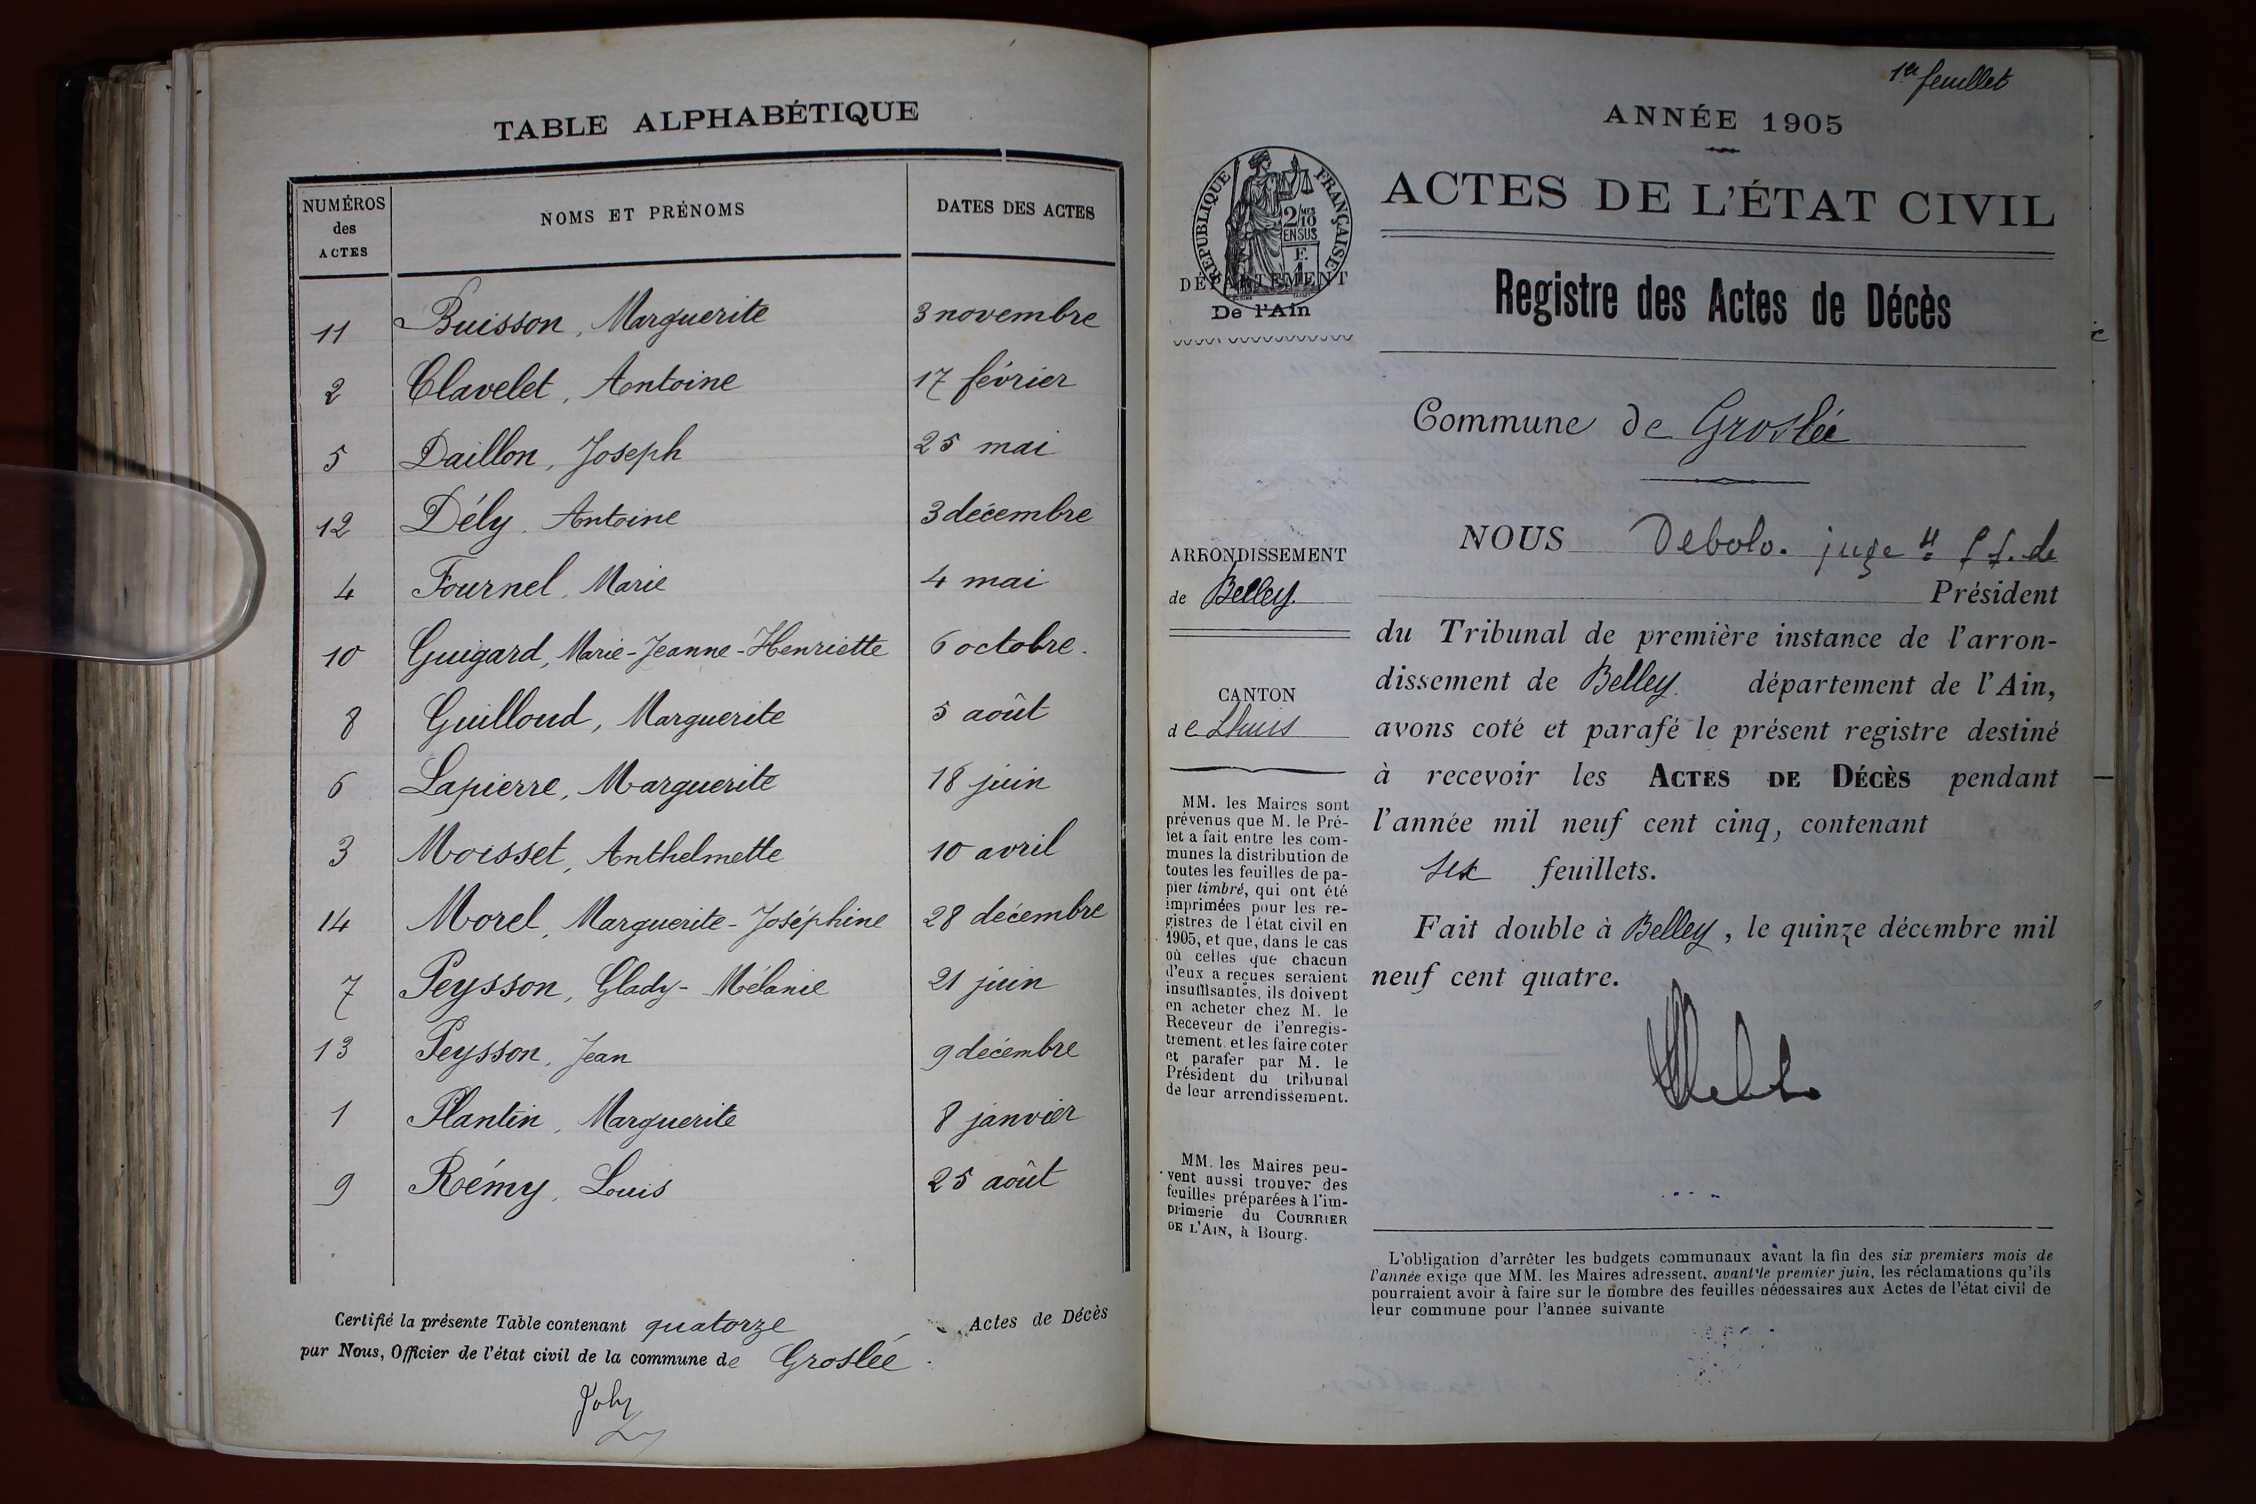 TABLE ALPHABÉTIQUE
NUMÉROS
des
ACTES
NOMS ET PRÉNOMS
DATES DES ACTES
11 Buisson, Marguerite 3 novembre
2 Clavelet, Antoine 17 février
5 Daillon, Joseph 25 mai
12 Dély, Antoine 3 décembre
4 Fournel, Marie 4 mai
10 Guigard, Marie-Jeanne-Henriette 6 octobre.
8 Guilloud, Marguerite 5 août
6 Lapierre, Marguerite 18 juin
3 Moisset, Anthelmette 10 avril
14 Morel, Marguerite-Joséphine 28 décembre
7 Peysson, Glady-Mélanie 21 juin
13 Peysson, Jean 9 décembre
1 Plantin, Marguerite 8 janvier
9 Rémy, Louis 25 août
Certifié la présente Table contenant quatorze Actes de Décès
par Nous, Officier de l'état civil de la commune de Groslée.
Joly
1er feuillet
ANNÉE 1905
ACTES DE L'ÉTAT CIVIL
RÉPUBLIQUE FRANÇAISE
DÉPARTEMENT
De l'Ain
Registre des Actes de Décès
Commune de Groslée
ARRONDISSEMENT
de Belley.
CANTON
de Lhuis
MM. les Maires sont
prévenus que M. le Pré-
fet a fait entre les com-
munes la distribution de
toutes les feuilles de pa-
pier timbré, qui ont été
imprimées pour les re-
gistres de l'état civil en
1905, et que, dans le cas
où celles que chacun
d'eux a reçues seraient
insuffisantes, ils doivent
en acheter chez M. le
Receveur de l'enregis-
trement et les faire coter
et parafer par M. le
Président du tribunal
de leur arrondissement.
MM. les Maires peu-
vent aussi trouver des
feuilles préparées à l'im-
primerie du COURRIER
DE L'AIN, à Bourg.
NOUS Debolo. juge ff. de
Président
du Tribunal de première instance de l'arron-
dissement de Belley. département de l'Ain,
avons coté et parafé le présent registre destiné
à recevoir les ACTES DE DÉCÈS pendant
l'année mil neuf cent cinq, contenant
six feuillets.
Fait double à Belley, le quinze décembre mil
neuf cent quatre.
L'obligation d'arrêter les budgets communaux avant la fin des six premiers mois de
l'année exige que MM. les Maires adressent, avant le premier juin, les réclamations qu'ils
pourraient avoir à faire sur le nombre des feuilles nécessaires aux Actes de l'état civil de
leur commune pour l'année suivante